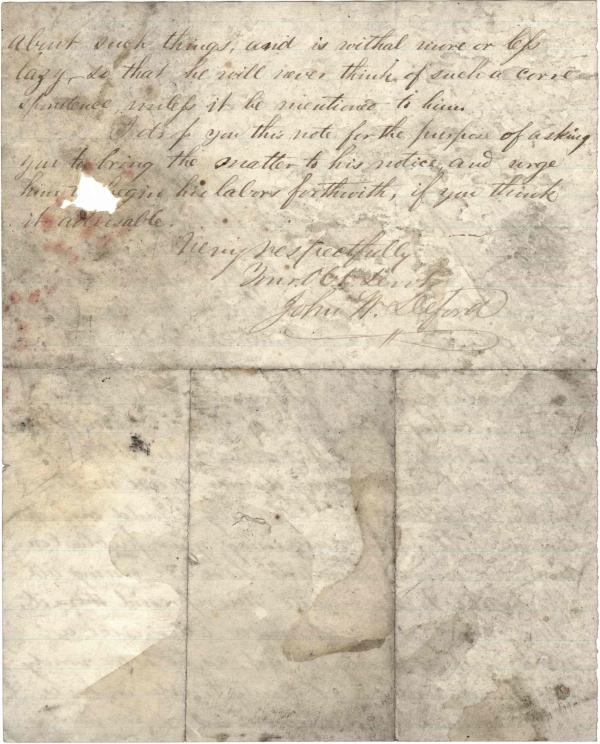 about such things, and is withal more or less
lazy, so that he will never think of such a corre-
spondence unless it be mentioned to him.
I drop you this note for the purpose of asking
you to bring the matter to his notice and urge
him to begin his labors forthwith, if you think
it advisable.
Very respectfully
Your Obt Servt
John W. Deford